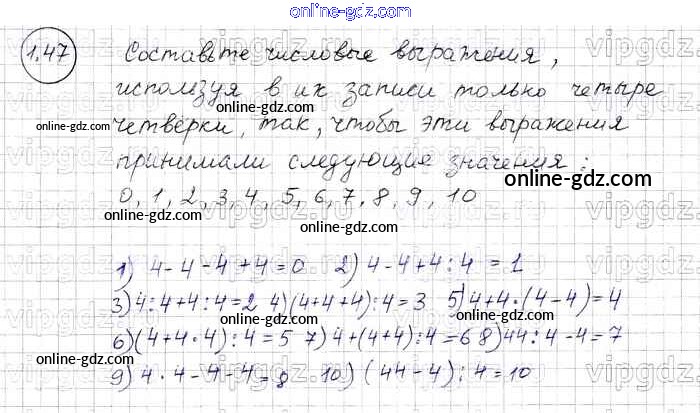 online-gdz.com
1.47 Составьте числовые выражения,
используя в их записи только четыре
online-gdz.com online-gdz.com
четвёрки, так, чтобы эти выражения
принимали следующие значения:
online-gdz.com
0, 1, 2, 3, 4, 5, 6, 7, 8, 9, 10
online-gdz.com online-gdz.com
1) 4-4-4+4=0 2) 4-4+4:4=1
3) 4:4+4:4=2 4) (4+4+4):4=3 5) 4+4·(4-4)=4
online-gdz.com
6) (4+4·4):4=5 7) 4+(4+4):4=6 8) 44:4-4=7
online-gdz.com online-gdz.com
9) 4·4-4-4=8 10) (44-4):4=10
online-gdz.com online-gdz.com